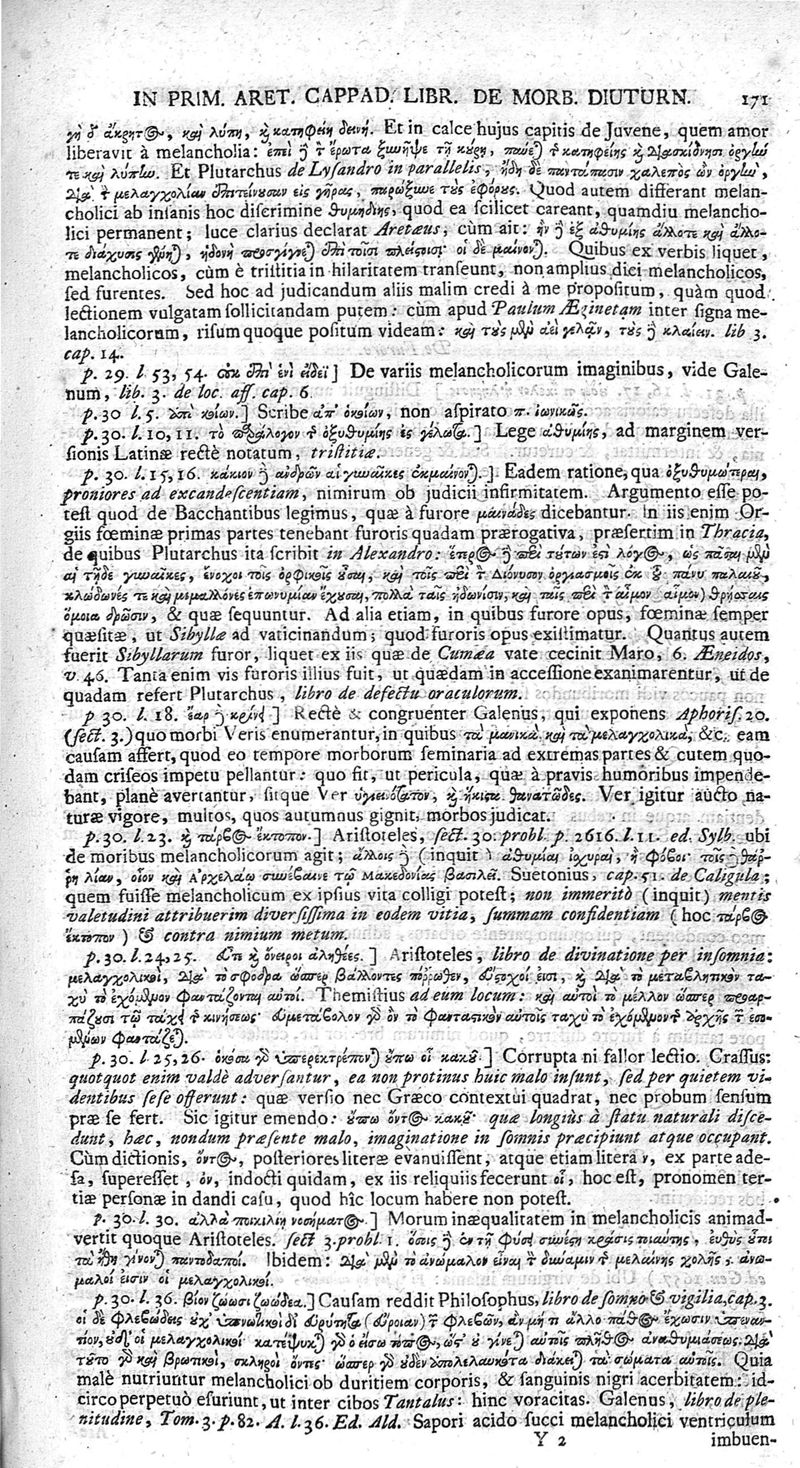 IN PRIM. ARET. CAPPAD. LIBR. DE MORB. DIUTURN. 171
καὶ λύπη, καὶ κατηφείη δεινή. Et in calce hujus capitis de Juvene, quem amor
liberavit à melancholia: ἐπεὶ δὲ τὸν ἔρωτα ξυνῆψε τῇ κούρῃ,
τε καὶ λύπην. Et Plutarchus de Lysandro in parallelis, ἤδη δὲ παντάπασιν χαλεπὸς ὢν ὀργὴν,
διὰ τὴν μελαγχολίαν ἐπιτείνουσαν εἰς γῆρας, παρώξυνε τοὺς ἐφόρους. Quod autem differant melan-
cholici ab insanis hoc discrimine θυμηδίης, quod ea scilicet careant, quamdiu melancho-
lici permanent; luce clarius declarat Aretæus, cùm ait: ἢν δὲ ἐξ ἀθυμίης ἄλλοτε καὶ ἄλλο-
τε διάχυσις γένηται, ἡδονὴ προσγίγνεται ἐπὶ τοῖσι πλείστοισι· οἱ δὲ μαίνονται. Quibus ex verbis liquet,
melancholicos, cùm è tristitia in hilaritatem transeunt, non amplius dici melancholicos,
sed furentes. Sed hoc ad judicandum aliis malim credi à me propositum, quàm quod
lectionem vulgatam sollicitandam putem: cùm apud Paulum Æginetam inter signa me-
lancholicorum, risum quoque positum videam: καὶ τοὺς μὲν ἀεὶ γελᾶν, τοὺς δὲ κλαίειν. lib 3.
cap. 14.
p. 29. l. 53, 54. οὐκ ἐπὶ ἑνὶ εἴδεϊ] De variis melancholicorum imaginibus, vide Gale-
num, lib. 3. de loc. aff. cap. 6
p. 30 l. 5. ὑπὸ κοίων.] Scribe ἀπ' ὁκοίων, non aspirato π. ἰωνικῶς.
p. 30. l. 10, 11. τὸ παράλογον τῆς ὀξυθυμίης ἐς γέλωτα.] Lege ἀθυμίης, ad marginem ver-
sionis Latinæ rectè notatum, tristitiæ.
p. 30. l. 15, 16. κάκιον δὲ ἀνδρῶν αἱ γυναῖκες ἐκμαίνονται.] Eadem ratione, qua ὀξυθυμότεραι,
proniores ad excandescentiam, nimirum ob judicii infirmitatem. Argumento esse po-
test quod de Bacchantibus legimus, quæ à furore μαινάδες dicebantur. In iis enim Or-
giis fœminæ primas partes tenebant furoris quadam prærogativa, præsertim in Thracia,
de quibus Plutarchus ita scribit in Alexandro: ἕτερος δὲ περὶ τούτων ἐστὶ λόγος, ὡς πᾶσαι μὲν
αἱ τῇδε γυναῖκες, ἔνοχοι τοῖς ὀρφικοῖς οὖσαι, καὶ τοῖς περὶ τὸν Διόνυσον ὀργιασμοῖς ἐκ τοῦ πάνυ παλαιοῦ,
κλώδωνές τε καὶ μιμαλλόνες ἐπωνυμίαν ἔχουσαι, πολλὰ ταῖς ἠδωνίσιν, καὶ ταῖς περὶ τὸν αἷμον (αἶμον) θρῄσσαις
ὅμοια δρῶσιν, & quæ sequuntur. Ad alia etiam, in quibus furore opus, fœminæ semper
quæsitæ, ut Sibyllæ ad vaticinandum; quod furoris opus existimatur. Quantus autem
fuerit Sibyllarum furor, liquet ex iis quæ de Cumæa vate cecinit Maro, 6. Æneidos,
v. 46. Tanta enim vis furoris illius fuit, ut quædam in accessione exanimarentur, ut de
quadam refert Plutarchus, libro de defectu oraculorum.
p 30. l. 18. ἔαρ] Rectè & congruenter Galenus, qui exponens Aphoris. 20.
(sect. 3.) quo morbi Veris enumerantur, in quibus τὰ μανικὰ καὶ τὰ μελαγχολικά, &c. eam
causam affert, quod eo tempore morborum seminaria ad extremas partes & cutem quo-
dam criseos impetu pellantur: quo fit, ut pericula, quæ à pravis humoribus impende-
bant, planè avertantur, sitque Ver ὑγιεινότατον, καὶ ἥκιστα θανατῶδες. Ver igitur aucto na-
turæ vigore, multos, quos autumnus gignit, morbos judicat.
p. 30. l. 23. καὶ τάρβος ἔκτοπον.] Aristoteles, sect. 30. probl. p. 2616. l. 11. ed. Sylb. ubi
de moribus melancholicorum agit; ἄλλοις δὲ (inquit) ἀθυμίαι ἰσχυραὶ, ἢ φόβοι· τοῖς δὲ θαῤ-
ῥῇ λίαν, οἷον καὶ Ἀρχελάῳ συνέβαινε τῷ Μακεδονίας βασιλεῖ. Suetonius, cap. 51. de Caligula;
quem fuisse melancholicum ex ipsius vita colligi potest; non immeritò (inquit) mentis
valetudini attribuerim diversissima in eodem vitia, summam confidentiam (hoc τάρβος
ἔκτοπον) & contra nimium metum.
p. 30. l. 24, 25. ὅτε καὶ ὄνειροι ἀληθέες.] Aristoteles, libro de divinatione per insomnia:
μελαγχολικοὶ, διὰ τὸ σφόδρα ὥσπερ βάλλοντες πόῤῥωθεν, εὔστοχοί εἰσι, καὶ διὰ τὸ μεταβλητικὸν τα-
χὺ τὸ ἐχόμενον φαντάζονται αὐτοί. Themistius ad eum locum: καὶ αὐτοὶ τὸ μέλλον ὥσπερ προαρ-
πάζουσι τῷ τάχει τῆς κινήσεως· εὐμετάβολον γὰρ ὂν τὸ φανταστικὸν αὐτοῖς ταχὺ τὸ ἐχόμενον τῆς ἀρχῆς ἢ ἐσο-
μένων φαντάζεται.
p. 30. l. 25, 26. ὁκόσα γὰρ ὑπερεκτρέπονται οὔπω οἱ κακοῦ.] Corrupta ni fallor lectio. Crassus:
quotquot enim valdè adversantur, ea non protinus huic malo insunt, sed per quietem vi-
dentibus sese offerunt: quæ versio nec Græco contextui quadrat, nec probum sensum
præ se fert. Sic igitur emendo: οὔπω ὄντος κακοῦ· quæ longiùs à statu naturali disce-
dunt, hæc, nondum præsente malo, imaginatione in somnis præcipiunt atque occupant.
Cùm dictionis, ὄντος, posteriores literæ evanuissent, atque etiam litera ν, ex parte ade-
sa, superesset, ὀν, indocti quidam, ex iis reliquiis fecerunt οἱ, hoc est, pronomen ter-
tiæ personæ in dandi casu, quod hîc locum habere non potest.
p. 30. l. 30. ἀλλὰ ποικιλίη νοσήματος.] Morum inæqualitatem in melancholicis animad-
vertit quoque Aristoteles. sect 3. probl 1. ὅσοις δὲ ἐν τῇ φύσει συνέστη κρᾶσις τοιαύτης, εὐθὺς οὗτοι
τὰ ἤθη γίνονται παντοδαποί. Ibidem: διὰ μὲν τὸ ἀνώμαλον εἶναι τὴν δύναμιν τῆς μελαίνης χολῆς, ἀνώ-
μαλοί εἰσιν οἱ μελαγχολικοί.
p. 30. l. 36. βίον ζώωσι ζωώδεα.] Causam reddit Philosophus, libro de somno & vigilia, cap. 3.
οἱ δὲ φλεβώδεις οὐχ ὑπνωτικοὶ δι' εὐρύτητα (εὔροιαν) τῶν φλεβῶν, ἂν μή τι ἄλλο πάθος ἔχωσιν ὑπεναν-
τίον, οὐδ' οἱ μελαγχολικοὶ· κατέψυκται γὰρ ὁ εἴσω τόπος, ὥστ' οὐ γίνεται αὐτοῖς πλῆθος ἀναθυμιάσεως. διὰ
τοῦτο γὰρ καὶ βρωτικοὶ, σκληροὶ ὄντες· ὥσπερ γὰρ οὐδὲν ἀπολελαυκότα διάκειται τὰ σώματα αὐτοῖς. Quia
malè nutriuntur melancholici ob duritiem corporis, & sanguinis nigri acerbitatem: id-
circo perpetuò esuriunt, ut inter cibos Tantalus: hinc voracitas. Galenus, libro de ple-
nitudine, Tom. 3. p. 82. A. l. 36. Ed. Ald. Sapori acido succi melancholici ventriculum
Y 2 imbuen-